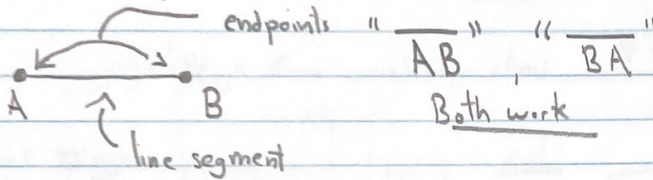 endpoints " A̅B̅ " , " B̅A̅ "
A B Both work
line segment